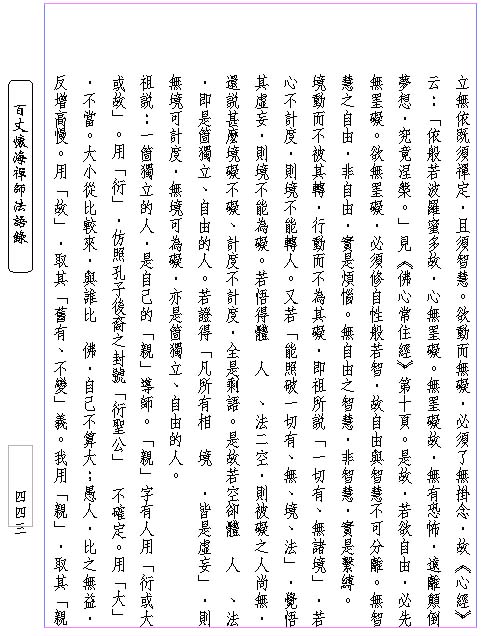 立無依旣須禪定，且須智慧。欲動而無礙，必須了無掛念，故《心經》
云：「依般若波羅蜜多故，心無罣礙。無罣礙故，無有恐怖，遠離顛倒
夢想，究竟涅槃。」見《佛心常住經》第十頁。是故，若欲自由，必先
無罣礙。欲無罣礙，必須修自性般若智，故自由與智慧不可分離。無智
慧之自由，非自由，實是煩惱。無自由之智慧，非智慧，實是繫縛。
境動而不被其轉，行動而不為其礙，即祖所說「一切有、無諸境」，若
心不計度，則境不能轉人。又若「能照破一切有、無、境、法」，覺悟
其虛妄，則境不能為礙。若悟得體　人　、法二空，則被礙之人尚無，
還說甚麼境礙不礙、計度不計度，全是剩語。是故若空卻體　人　、法
，即是箇獨立、自由的人。若證得「凡所有相　境　，皆是虛妄」，則
無境可計度，無境可為礙，亦是箇獨立、自由的人。
祖說：一箇獨立的人，是自己的「親」導師。「親」字有人用「衍或大
或故」。用「衍」，仿照孔子後裔之封號「衍聖公」　不確定。用「大」
，不當。大小從比較來，與誰比　佛，自己不算大；愚人，比之無益，
反增高慢。用「故」，取其「舊有、不變」義。我用「親」，取其「親
百丈懷海禪師法語錄
四四三